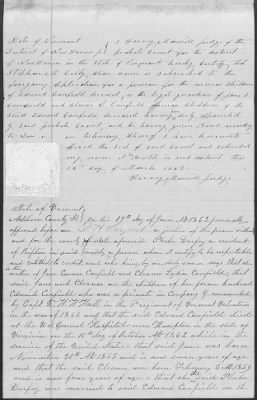 State of Vermont } I Harvey Munsill Judge of the
District of New Haven } probate court for the district
of New Haven in the State of Vermont hereby certify, that
Stephen M whose name is subscribed to the
foregoing application for a pension for the minor children
of Edward Canfield deceased, is the legal guardian of Jane E
Canfield and Elenor L Canfield minor children of the
said Edward Canfield deceased having duly appointed
by said probate court and he having given bond according
to Law in testimony whereof I have hereunto
affixed the seal of said court and subscribed
my name at Bristol in said district this
day of March 1863
Harvey Munsill Judge
State of Vermont
Addison County SS } On the 19th day of Jan AD 1863 personally
appeared before me a justice of the peace within
and for the county & state aforesaid of
Ripton in said County a person whom I certify to be respectable
and entitled to credit and who being by me duly sworn says that she is
the mother of Jane Canfield and Eleanor Lydia Canfield, that
said Jane and Eleanor are the children of her former husband
Edward Canfield who was a private in Company commanded
by Capt in the 2d regiment of Vermont Volunteers
in the war of 1861 and that the said Edward Canfield died
at the U.S General Hospital near Hampton in the state of
Virginia on the day of October AD 1862 while in the
service of the United States - that said Jane was born
November 30th AD 1855 and is now seven years of age
and that the said Eleanor was born February AD 1859
and is now four years of age - that the said
was married to said Edward Canfield on the